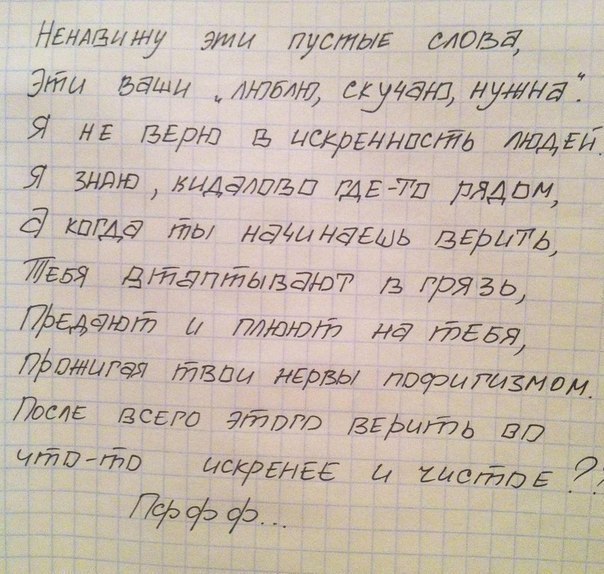 Ненавижу эти пустые слова,
Эти ваши „люблю, скучаю, нужна".
Я не верю в искренность людей.
Я знаю, кидалово где-то рядом,
а когда ты начинаешь верить,
Тебя втаптывают в грязь,
Предают и плюют на тебя,
Прожигая твои нервы пофигизмом.
После всего этого верить во
что-то искренее и чистое??
Пффф...